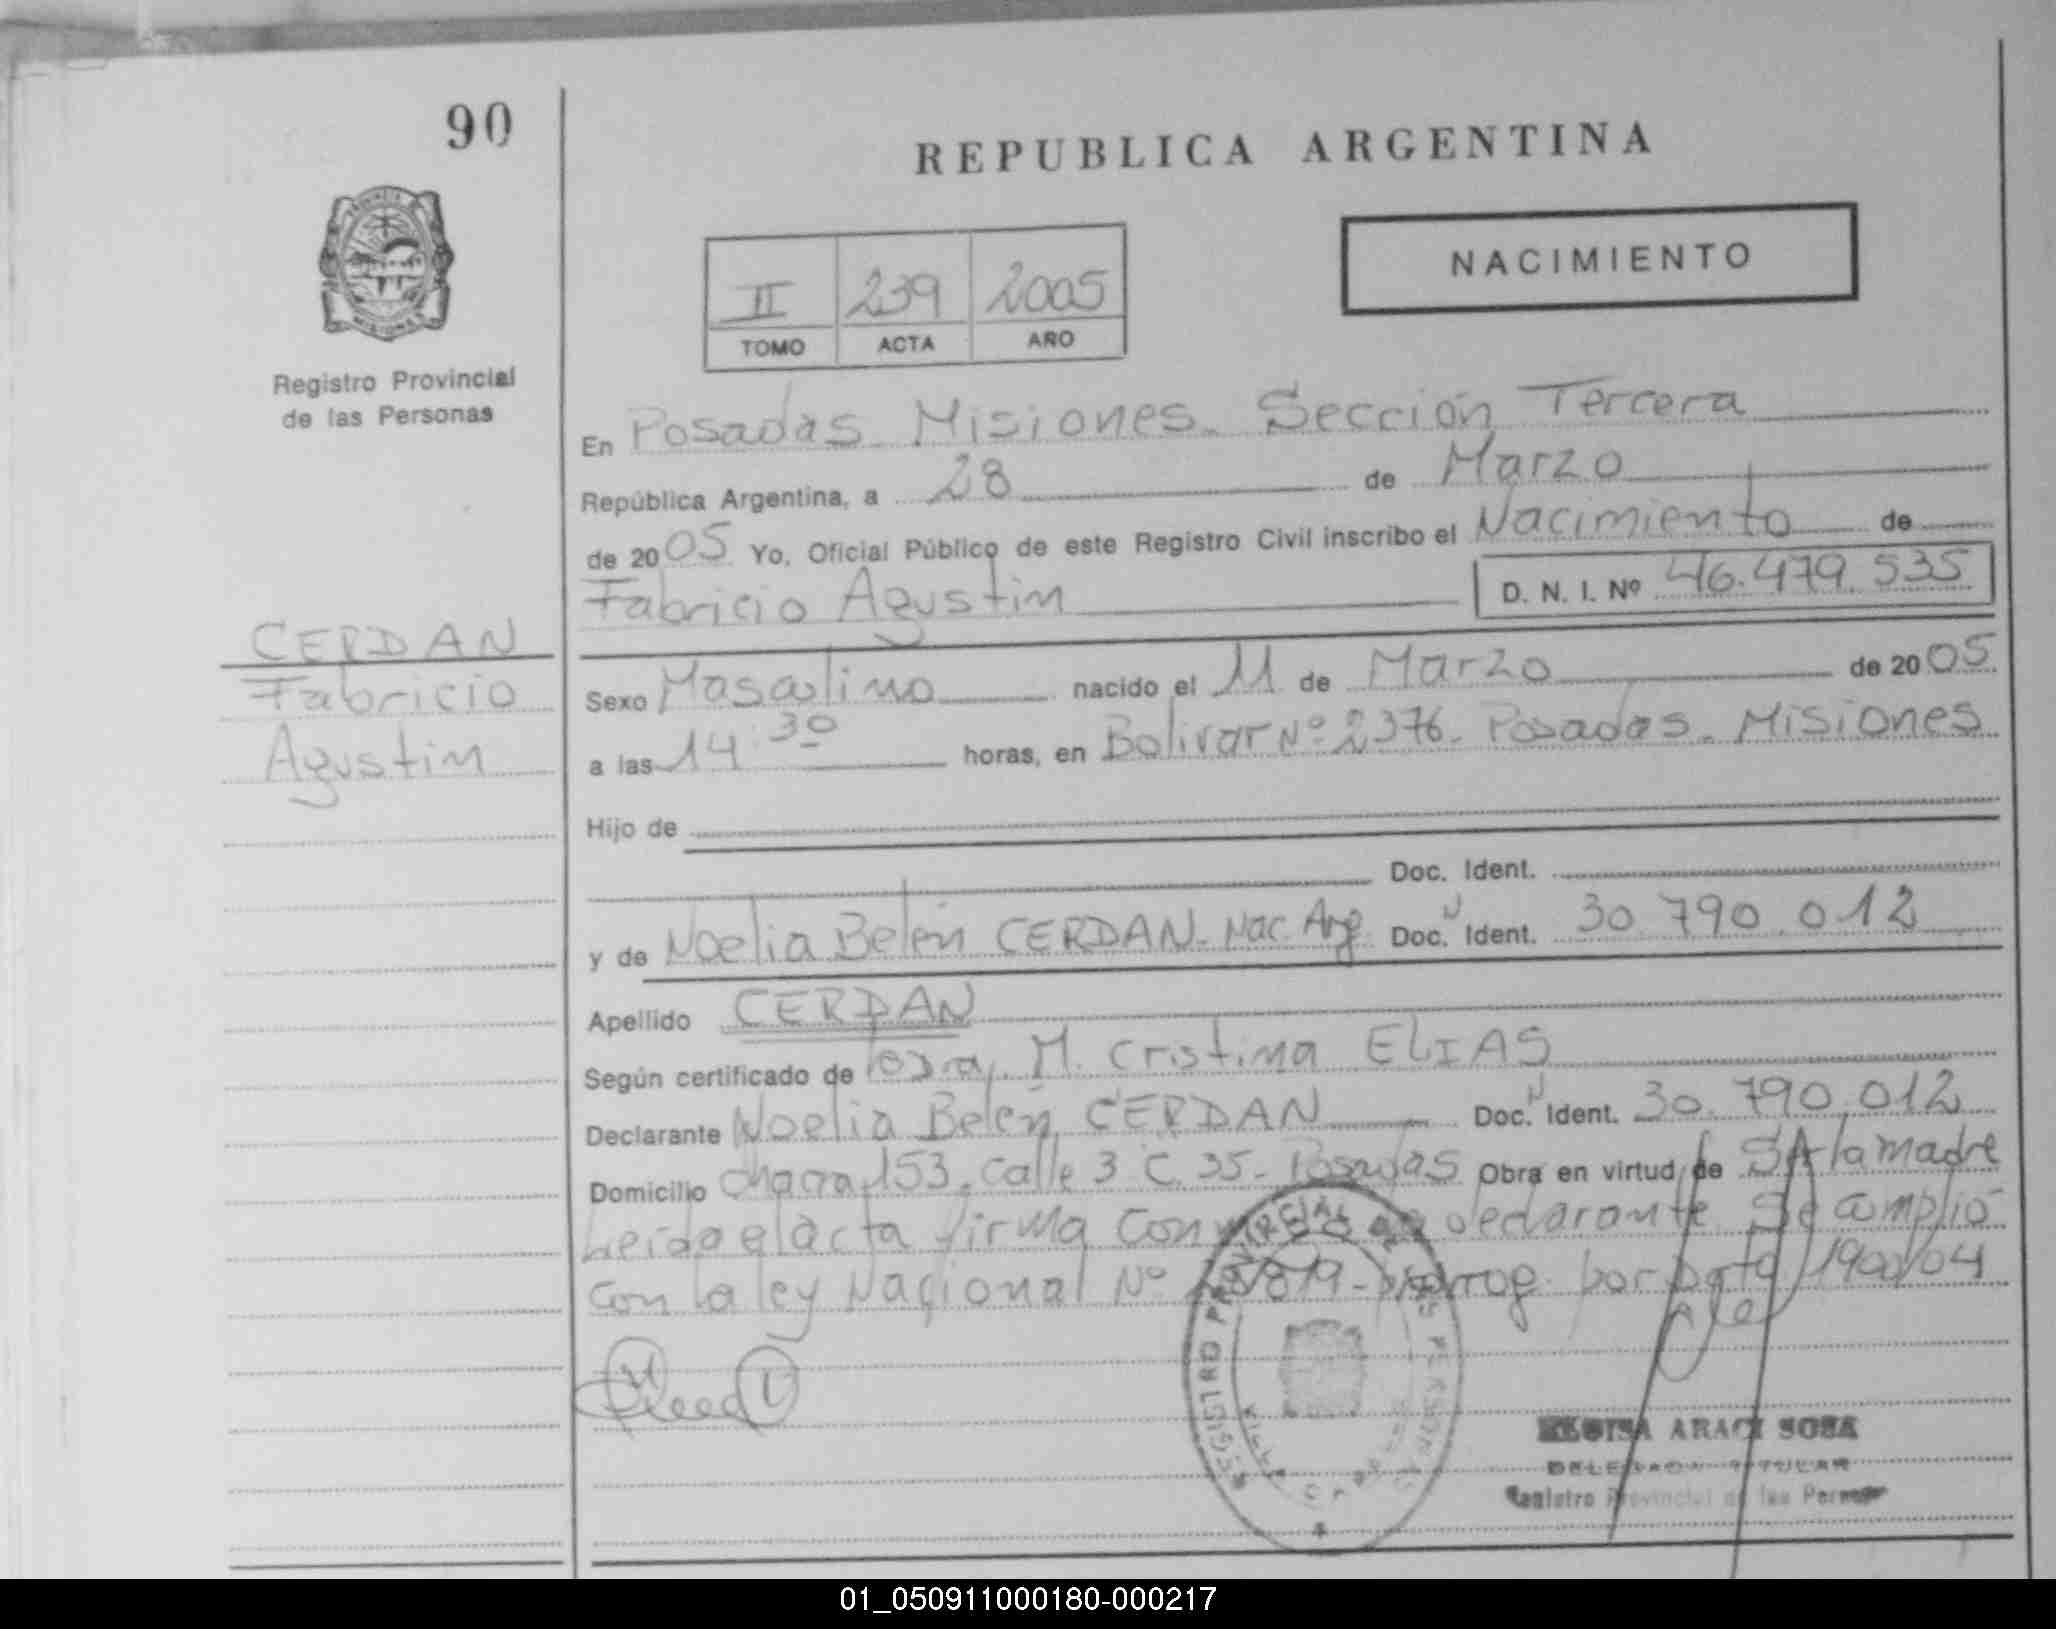 90
REPUBLICA ARGENTINA
NACIMIENTO
II 239 2005
TOMO ACTA AÑO
Registro Provincial
de las Personas
En Posadas Misiones Sección Tercera
República Argentina, a 28 de Marzo
de 2005 Yo, Oficial Público de este Registro Civil inscribo el Nacimiento de
Fabricio Agustin D. N. I. Nº 46.479.535
CERDAN
Fabricio
Agustin
Sexo Masculino nacido el 11 de Marzo de 2005
a las 14:30 horas, en Bolivar Nº 2376. Posadas. Misiones
Hijo de
Doc. Ident.
y de Noelia Belén CERDAN. Nac. Arg. Doc. N Ident. 30.790.012
Apellido CERDAN
Según certificado de M. Cristina ELIAS
Declarante Noelia Belén CERDAN Doc. N Ident. 30.790.012
Domicilio Chacra 153. Calle 3 C. 35- Posadas Obra en virtud de la madre
Leida el acta firma declarante Se cumplió
con la ley Nacional Nº por
REGISTRO PROVINCIAL DE LAS PERSONAS
ARACI SOSA
DELEGADA TITULAR
Registro Provincial de las Personas
01_050911000180-000217